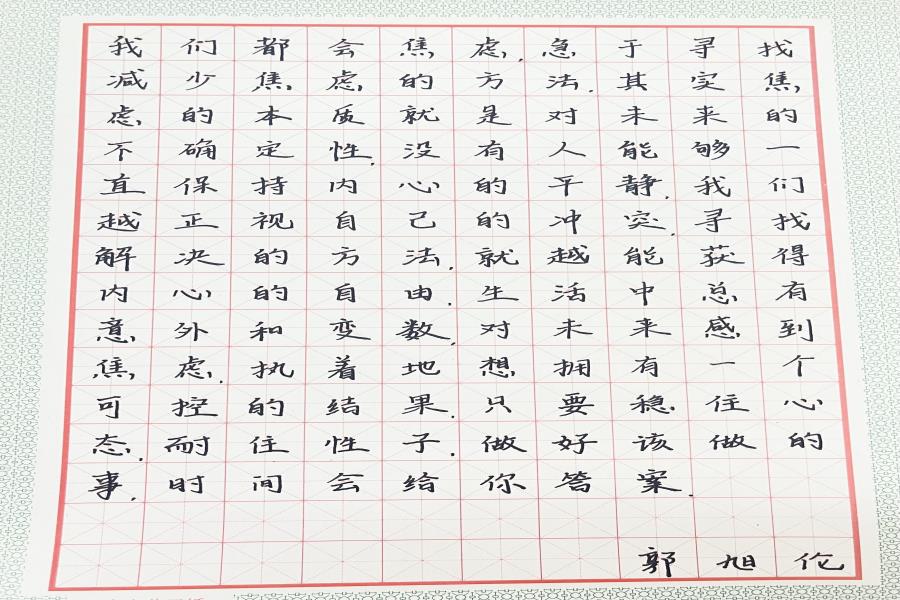 我们都会焦虑.急于寻找
减少焦虑的方法.其实焦
虑的本质就是对未来的
不确定性.没有人能够一
直保持内心的平静.我们
越正视自己的冲突.寻找
解决的方法.就越能获得
内心的自由.生活中总有
意外和变数.对未来感到
焦虑.执着地想拥有一个
可控的结果.只要稳住心
态.耐住性子.做好该做的
事.时间会给你答案.
郭旭伦